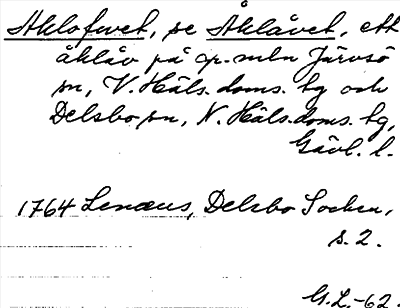 Åklofwet, se Åklåvet, ett
åklåv på gr. mln Järvsö
sn, V. Häls. doms. tg och
Delsbo sn, N. Häls. doms. tg,
Gävl. l.
1764 Lenæus, Delsbo Socken,
s. 2.
G.L.-62.